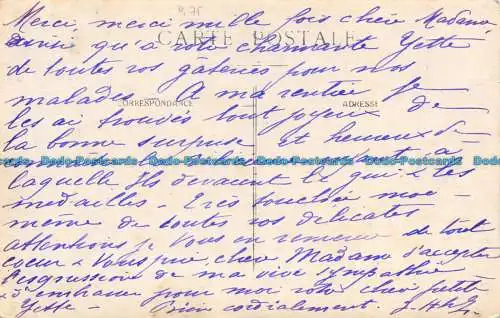 4,75
Merci, merci mille fois chère Madame
ainsi qu'à votre charmante Yette
CARTE POSTALE
de toutes vos gâteries pour nos
malades - A ma rentrée je
CORRESPONDANCE
ADRESSE
les ai trouvés tout joyeux de
la bonne surprise et heureux de
Dodo-Postcards Dodo-Postcards Dodo-Postcards Dodo-Postcards
laquelle Ils devaient
médailles - Très touchée moi-
même de toutes vos délicates
attentions je vous en remercie de tout
coeur & vous prie, chère Madame d'accepter
l'expression de ma vive sympathie
pour moi votre chère petite
Yette - Bien cordialement